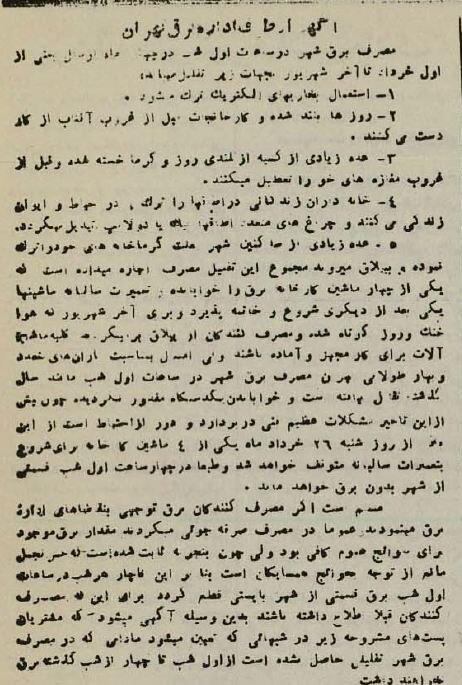 آگهی از طرف اداره برق تهران
مصرف برق شهر در ساعات اول شب در چهار ماه از سال یعنی از
اول خرداد تا آخر شهریور بجهات زیر تقلیل مییابد:
۱- استعمال بخاریهای الکتریک ترک میشود.
۲- روز ها بلند شده و کارخانجات قبل از غروب آفتاب از کار
دست می کشند.
۳- عده زیادی از کسبه از بلندی روز و گرما خسته شده و قبل از
غروب مغازه های خود را تعطیل میکنند.
٤- خانه داران زندگانی در اطاقها را ترک و در حیاط و ایوان
زندگی می کنند و چراغ های متعدد اطاقها بیک یا دو لامپ تبدیل میگردد.
۵- عده زیادی از ساکنین شهر بعلت گرما خانه های خود را ترک
نموده و ببیلاق میروند مجموع این تقلیل مصرف اجازه میداده است که
یکی از چهار ماشین کارخانه برق را خوابانده و تعمیرات سالیانه ماشینها
یکی بعد از دیگری شروع و خاتمه پذیرد و برای آخر شهریور که هوا
خنک و روز کوتاه شده و مصرف کنندگان از ییلاق بر میگردند کلیه ماشین
آلات برای کار مجهز و آماده باشند ولی امسال بمناسبت بارانهای ممتد
و بهار طولانی چون مصرف برق شهر در ساعات اول شب مانند سال
گذشته تقلیل نیافته است و خواباندن یکدستگاه مقدور نگردیده چون بیش
از این تاخیر مشکلات عظیم فنی در بر دارد و دور از احتیاط است از این
از روز شنبه ۲۶ خرداد ماه یکی از ٤ ماشین کارخانه برای شروع
بتعمیرات سالیانه متوقف خواهد شد و طبعا در چهار ساعت اول شب قسمتی
از شهر بدون برق خواهد ماند.
مسلم است اگر مصرف کنندگان برق توجهی بتقاضاهای اداره
برق مینمودند و عموما در مصرف صرفه جوئی میکردند مقدار برق موجود
برای حوائج عموم کافی بود ولی چون بتجربه ثابت شده است که
مانع از توجه حوائج همسایگان است بنا بر این ناچار هر شب در ساعات
اول شب برق قسمتی از شهر بایستی قطع گردد برای این که مصرف
کنندگان قبلا اطلاع داشته باشند بدین وسیله آگهی میشود که مشتریان
پست های مشروحه زیر در شبهائی که تعیین میشود مادامی که در مصرف
برق شهر تقلیل حاصل نشده است از اول شب تا چهار از شب گذشته برق
نخواهند داشت